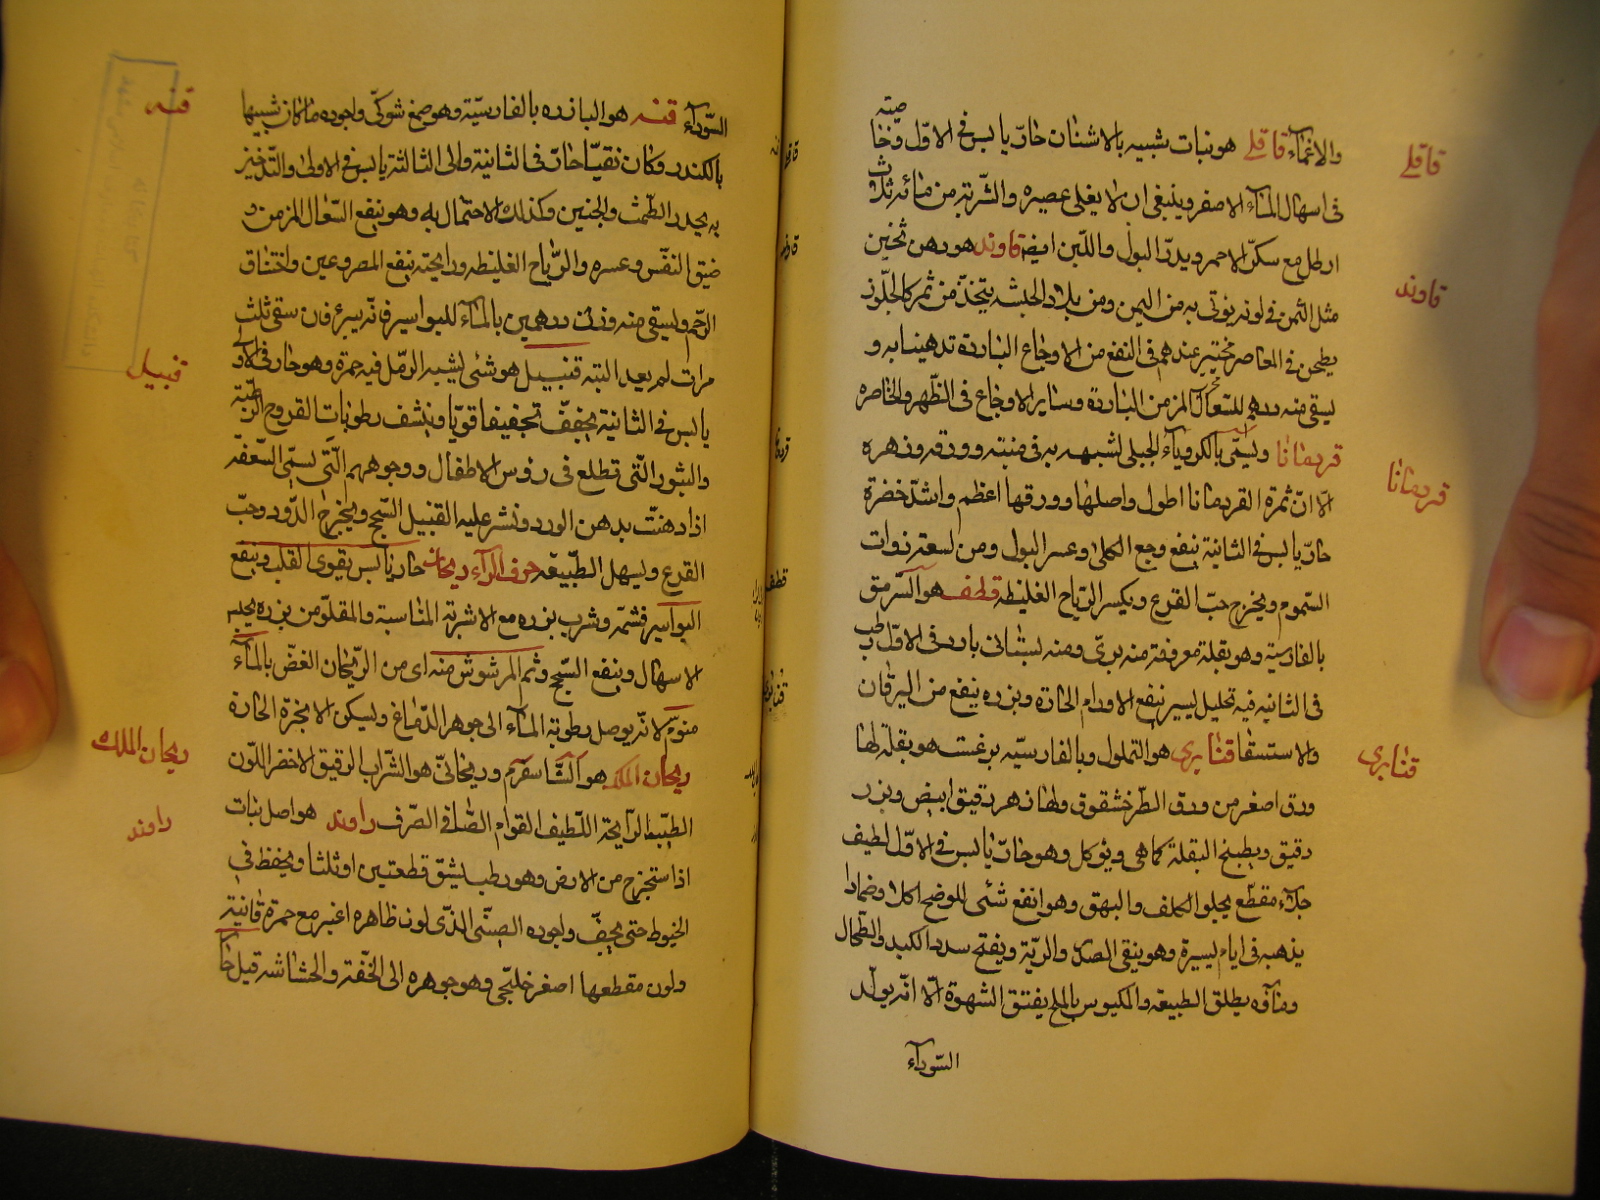 والاغماء قاقلى هو نبات شبيه بالاشنان حارّ يابس فى الاوّل و خاصيته
فى اسهال الماء الاصفر وينبغى ان لا يغلى عصيره والشّربة من مائه ثلاث
ارطل مع سكّر الاحمر ويدرّ البول واللّبن ايضا قاوند هو دهن ثخين
مثل الثمن فى لونه يؤتى به من اليمن ومن بلاد الحبشه يتخذ من ثمر كالجلّوز
يطحن فى المعاصر مختبر عندهم فى النفع من الاوجاع الباردة تدهينا به و
يسقى منه درهم للسّعال المزمن الباردة وساير الاوجاع فى الظّهر والخاصره
قردمانا ويسمّى بالكروياء الجبلى لشبهه به فى منبته وورقه وزهره
الّا انّ ثمرة القردمانا اطول واصلها وورقها اعظم واشدّ خضرة
حارّ يابس فى الثانية ينفع وجع الكلى وعسر البول ومن لسعة ذوات
السّموم ويخرج حبّ القرع ويكسر الرّياح الغليظه قطف هو السّرمق
بالفارسيّة وهو بقلة معروفة منه برىّ ومنه بستانى بارد فى الاوّل رطب
فى الثانيه فيه تحليل يسير ينفع الاورام الحارّة وبزره ينفع من اليرقان
والاستسقا قنابرى هو التملول وبالفارسيّه برغست هو بقلة لها
ورق اصغر من ورق الطّرخشقوق ولها زهر دقيق ابيض وبزر
دقيق ويطبخ البقلة كما هى ويؤكل وهو حارّ يابس فى الاوّل لطيف
جلّاء مقطّع يجلو الكلف والبهق وهو انفع شئى للوضح اكلا وضمادا
يذهبه فى ايام يسيرة وهو ينقى الصدر والريّة ويفتح سدد الكبد والطّحال
وماؤه يطلق الطبيعه والمكبوس بالملح يفتق الشهوة الّا انّه يولّد
السّوداء
قاقلى
قاوند
قردمانا
قنابرى
السّوداء قنه هو البازرد بالفارسيّة وهو صمغ شوكىّ واجوده ما كان شبيها
بالكندر وكان نقيّا حارّ فى الثانية والى الثالثة يابس فى الاولى والتّدخين
به يحدر الطّمث والجنين وكذلك الاحتمال به وهو ينفع السّعال المزمن و
ضيق النفّس وعسره والرّياح الغليظه ورايحته ينفع المصروعين واختناق
الرّحم ويسقى منه وزن درهمين بالماء للبواسير فانّه يبرئ فان سقى ثلث
مرات لم يعد البتة قنبيل هو شئى يشبه الرّمل فيه حمرة وهو حار فى الاولى
يابس فى الثانية يجفّف تجفيفا قويّا وينشف رطوبات القروح الرطبة
والبثور الّتى تطلع فى رؤس الاطفال ووجوههم الّتى يسمّى السّعفة
اذا دهنت بدهن الورد ونشر عليه القنبيل السّحج ويخرج الدّود وحبّ
القرع ويسهل الطّبيعة حرف الراء ريحان حار يابس يقوى القلب وينفع
البواسير فشمّه وشرب بزره مع الاشربة المناسبة والمقلوّ من بزره يحبس
الاسهال وينفع السّحج وشم المرشوش منه اى من الرّيحان الغضّ بالماء
منوّم لانّه يوصل رطوبة الماء الى جوهر الدّماغ ويسكن الابخرة الحارة
ريحان الملك هو الشّاسفرم وريحانىّ هو الشّراب الرقيق الاخضر اللّون
الطيّب الرّايحة اللّطيف القوام الصّافى الصّرف راوند هو اصل نبات
اذا ستخرج من الارض وهو رطب يشقّ قطعتين او ثلثا ويحفظ فى
الخيوط حتى يجفّ واجوده الصينّى الّذى لون ظاهره اغبر مع حمرة قانية
ولون مقطعها اصغر خلنجّى وهو جوهره الى الخّفة والحشاشه قيل حارّ
قنه
قنبيل
ريحان الملك
راوند